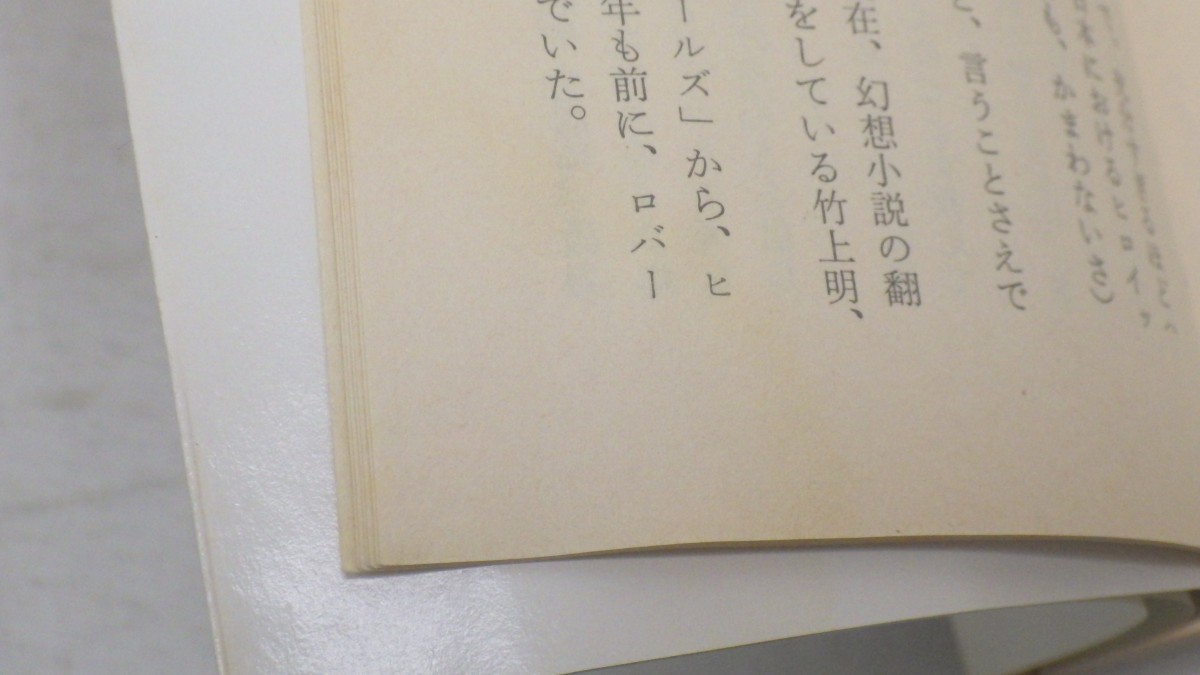 日本におけるヒロイッ
も、かまわないさ
と、言うことさえで
在、幻想小説の翻
をしている竹上明、
ールズ」から、ヒ
年も前に、ロバー
でいた。